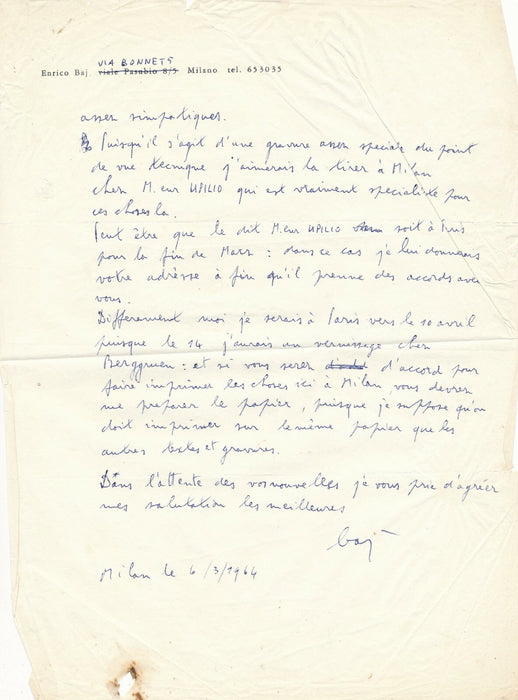 VIA BONNETS
Enrico Baj viale Pasubio 8/5 Milano tel. 653035
assez simpatiques.
Puisqu'il s'agit d'une gravure assez speciale du point
de vue tecnique j'aimerais la tirer à Milan
chez M.eur UPILIO qui est vraiment specialisté pour
ces choses la.
Peut être que le dit M.eur UPILIO soit à Paris
pour la fin de Mars : dans ce cas je lui donnerais
votre adrèsse à fin qu'il prenne des accords avec
vous.
Differement moi je serais à Paris vers le 10 avril
puisque le 14 j'aurais un vernissage chez
Berggruen : et si vous serez d'accord pour
faire imprimer les choses ici à Milan vous devrez
me preparer le papier, puisque je suppose qu'on
doit imprimer sur le même papier que les
autres textes et gravures.
Dans l'attente des vos nouvelles je vous prie d'agréer
mes salutation les meilleures
baj
Milan le 6/3/1964